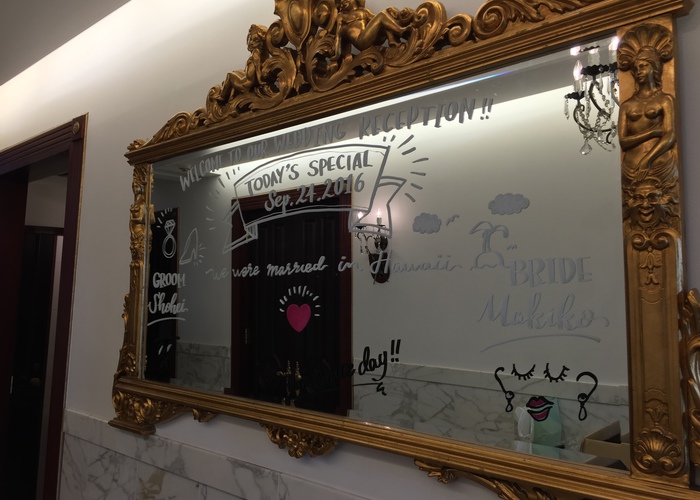 WELCOME TO OUR WEDDING RECEPTION!!
TODAY'S SPECIAL
Sep.24.2016
we were married in Hawaii
GROOM
Shohei
BRIDE
Makiko
day!!